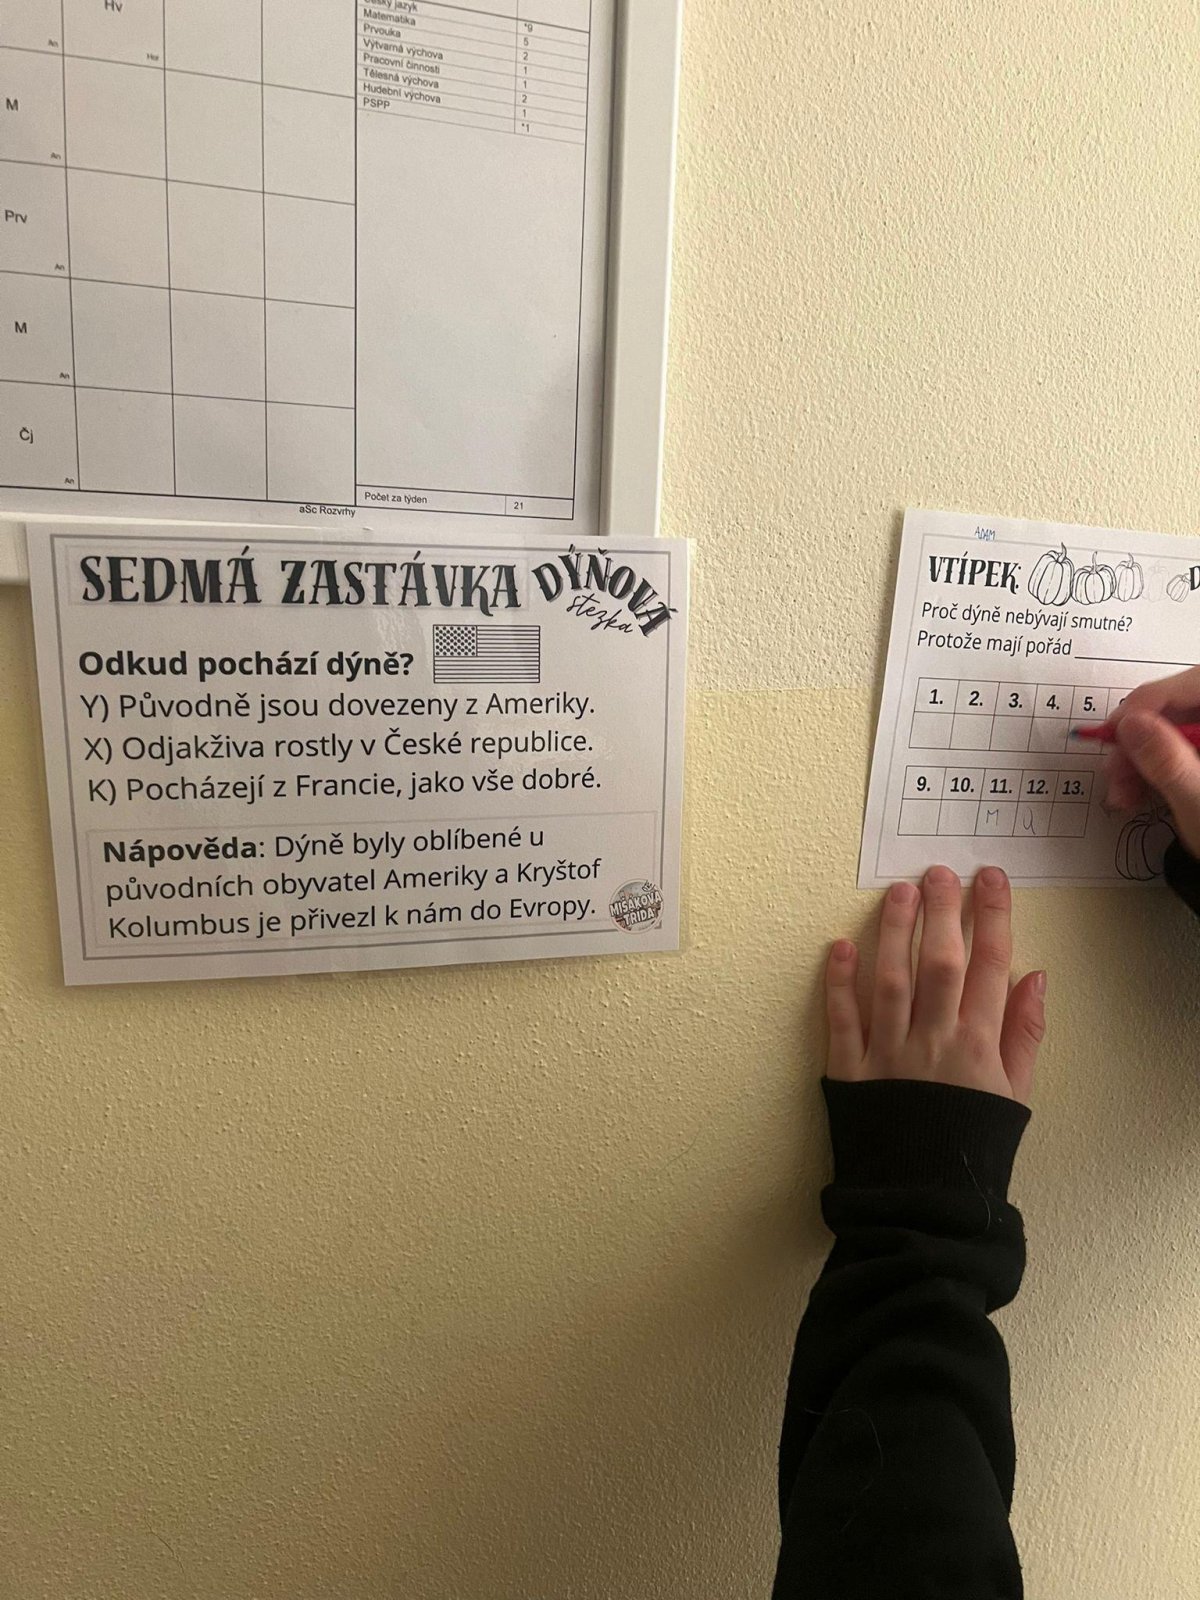 Hv
An
Her
M
An
Prv
An
M
An
Čj
An
Matematika *9
Prvouka 5
Výtvarná výchova 2
Pracovní činnosti 1
Tělesná výchova 1
Hudební výchova 2
PSPP 1
*1
Počet za týden 21
aSc Rozvrhy
SEDMÁ ZASTÁVKA DÝŇOVÁ
stezka
Odkud pochází dýně?
Y) Původně jsou dovezeny z Ameriky.
X) Odjakživa rostly v České republice.
K) Pocházejí z Francie, jako vše dobré.
Nápověda: Dýně byly oblíbené u
původních obyvatel Ameriky a Kryštof
Kolumbus je přivezl k nám do Evropy.
MIŠÁKOVA
TŘÍDA
ADAM
VTÍPEK:
Proč dýně nebývají smutné?
Protože mají pořád
1. 2. 3. 4. 5.
9. 10. 11. 12. 13.
M U